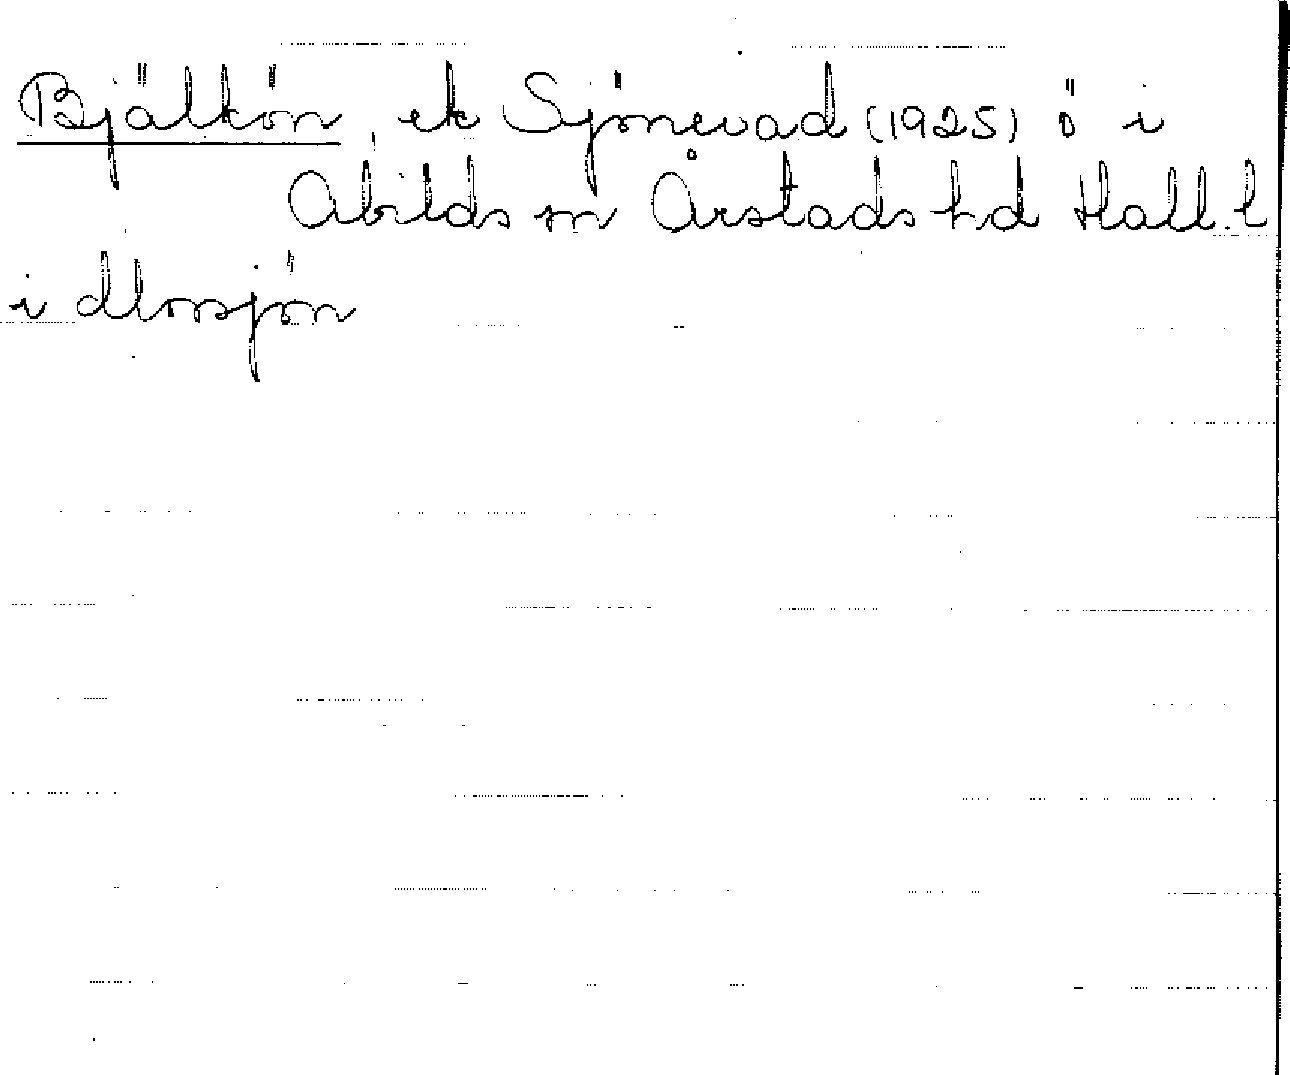 Bjälkön, ek Sjönevad (1925) ö i
Abilds sn Årstads hd Hall. l
i Mossjön